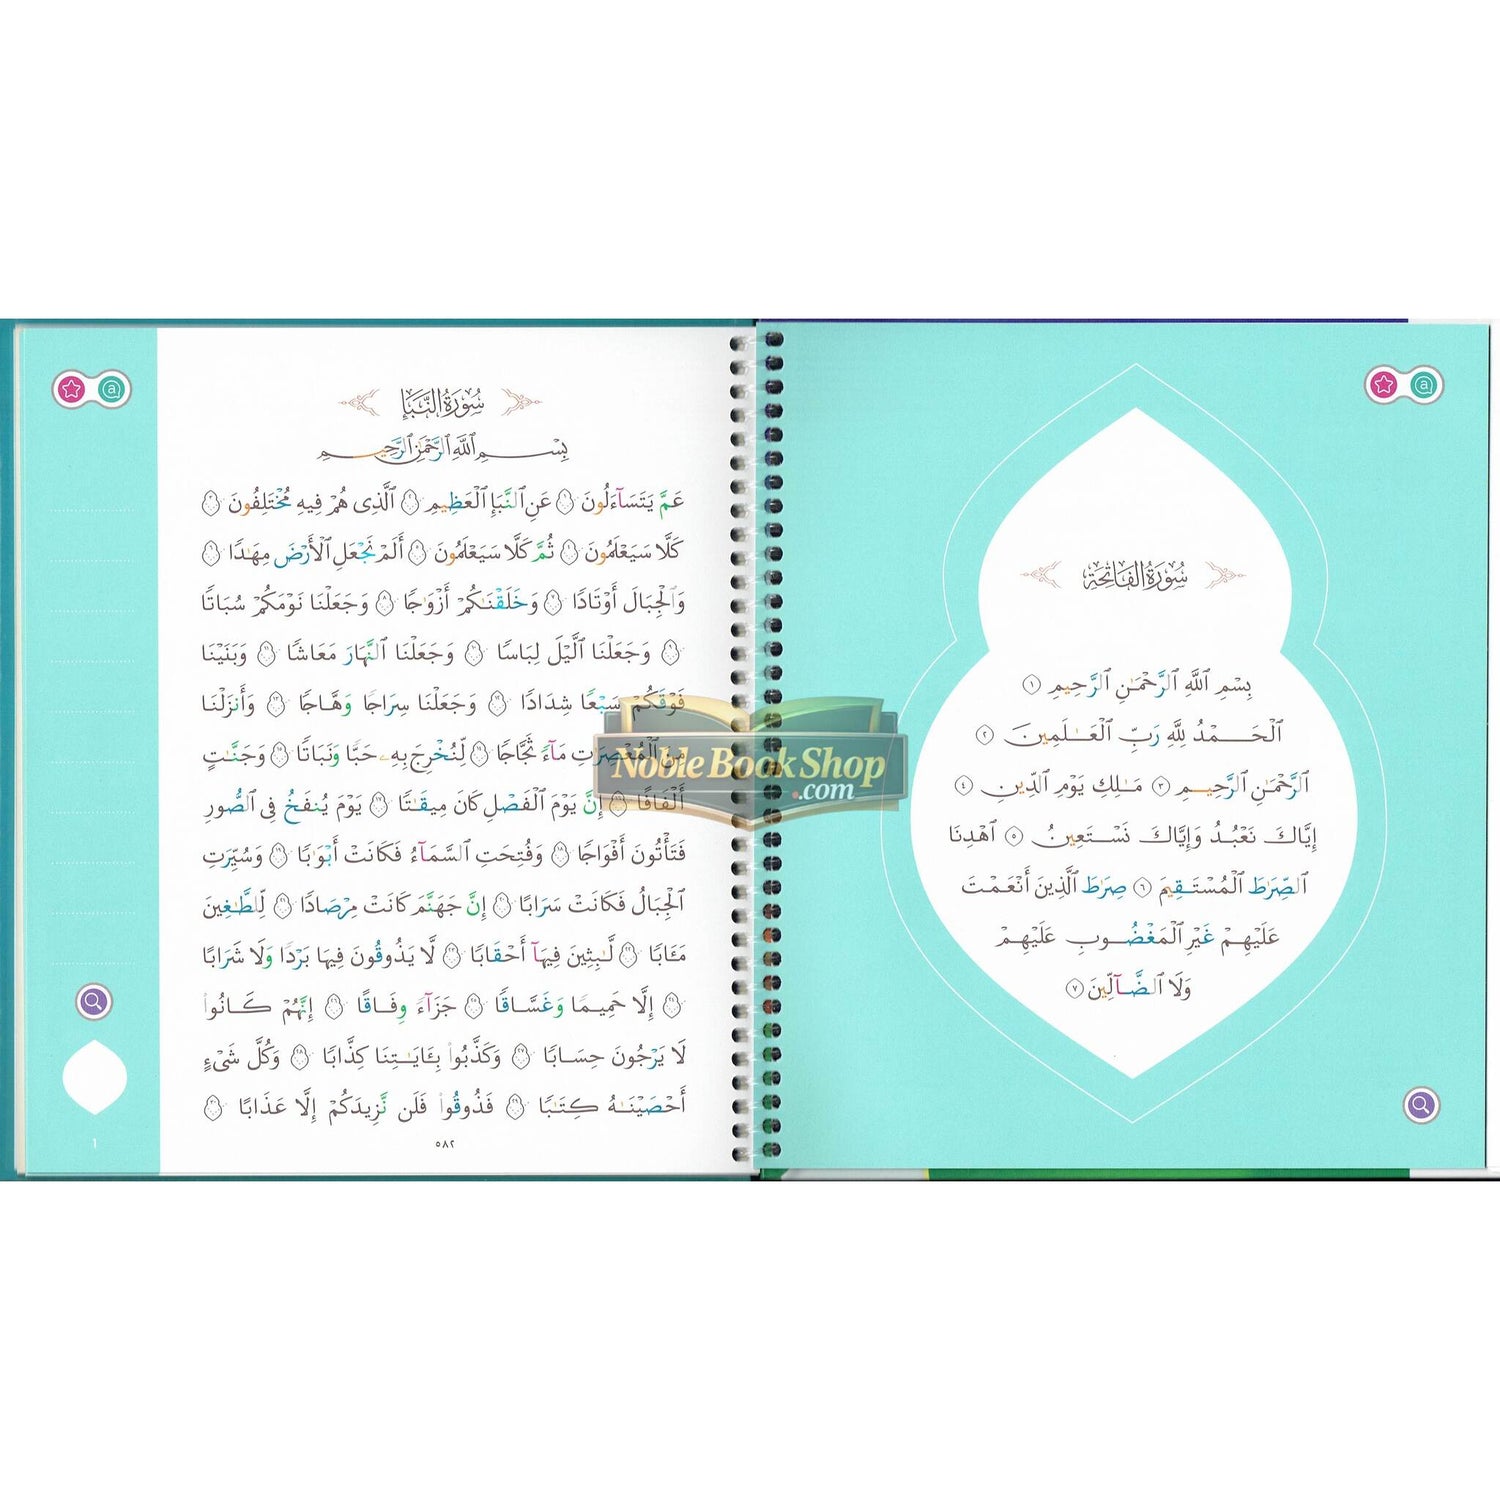 سُورَةُ الْفَاتِحَةِ
بِسْمِ ٱللَّهِ ٱلرَّحْمَٰنِ ٱلرَّحِيمِ ١
ٱلْحَمْدُ لِلَّهِ رَبِّ ٱلْعَٰلَمِينَ ٢
ٱلرَّحْمَٰنِ ٱلرَّحِيمِ ٣ مَٰلِكِ يَوْمِ ٱلدِّينِ ٤
إِيَّاكَ نَعْبُدُ وَإِيَّاكَ نَسْتَعِينُ ٥ ٱهْدِنَا
ٱلصِّرَٰطَ ٱلْمُسْتَقِيمَ ٦ صِرَٰطَ ٱلَّذِينَ أَنْعَمْتَ
عَلَيْهِمْ غَيْرِ ٱلْمَغْضُوبِ عَلَيْهِمْ
وَلَا ٱلضَّآلِّينَ ٧
سُورَةُ النَّبَإِ
بِسْمِ ٱللَّهِ ٱلرَّحْمَٰنِ ٱلرَّحِيمِ
عَمَّ يَتَسَآءَلُونَ ١ عَنِ ٱلنَّبَإِ ٱلْعَظِيمِ ٢ ٱلَّذِى هُمْ فِيهِ مُخْتَلِفُونَ ٣
كَلَّا سَيَعْلَمُونَ ٤ ثُمَّ كَلَّا سَيَعْلَمُونَ ٥ أَلَمْ نَجْعَلِ ٱلْأَرْضَ مِهَٰدًا ٦
وَٱلْجِبَالَ أَوْتَادًا ٧ وَخَلَقْنَٰكُمْ أَزْوَٰجًا ٨ وَجَعَلْنَا نَوْمَكُمْ سُبَاتًا
٩ وَجَعَلْنَا ٱلَّيْلَ لِبَاسًا ١٠ وَجَعَلْنَا ٱلنَّهَارَ مَعَاشًا ١١ وَبَنَيْنَا
فَوْقَكُمْ سَبْعًا شِدَادًا ١٢ وَجَعَلْنَا سِرَاجًا وَهَّاجًا ١٣ وَأَنزَلْنَا
مِنَ ٱلْمُعْصِرَٰتِ مَآءً ثَجَّاجًا ١٤ لِّنُخْرِجَ بِهِۦ حَبًّا وَنَبَاتًا ١٥ وَجَنَّٰتٍ
أَلْفَافًا ١٦ إِنَّ يَوْمَ ٱلْفَصْلِ كَانَ مِيقَٰتًا ١٧ يَوْمَ يُنفَخُ فِى ٱلصُّورِ
فَتَأْتُونَ أَفْوَاجًا ١٨ وَفُتِحَتِ ٱلسَّمَآءُ فَكَانَتْ أَبْوَٰبًا ١٩ وَسُيِّرَتِ
ٱلْجِبَالُ فَكَانَتْ سَرَابًا ٢٠ إِنَّ جَهَنَّمَ كَانَتْ مِرْصَادًا ٢١ لِّلطَّٰغِينَ
مَـَٔابًا ٢٢ لَّٰبِثِينَ فِيهَآ أَحْقَابًا ٢٣ لَّا يَذُوقُونَ فِيهَا بَرْدًا وَلَا شَرَابًا
٢٤ إِلَّا حَمِيمًا وَغَسَّاقًا ٢٥ جَزَآءً وِفَاقًا ٢٦ إِنَّهُمْ كَانُوا۟
لَا يَرْجُونَ حِسَابًا ٢٧ وَكَذَّبُوا۟ بِـَٔايَٰتِنَا كِذَّابًا ٢٨ وَكُلَّ شَىْءٍ
أَحْصَيْنَٰهُ كِتَٰبًا ٢٩ فَذُوقُوا۟ فَلَن نَّزِيدَكُمْ إِلَّا عَذَابًا ٣٠
٥٨٢
١
Noble Book Shop
.com